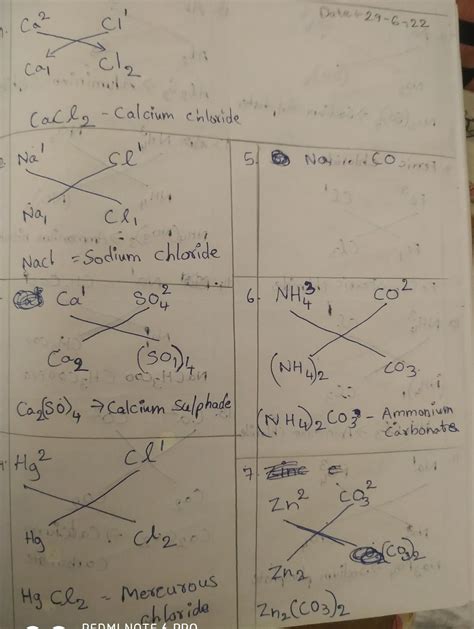 Date: 29-6-22
1. Ca² Cl¹
Ca₁ Cl₂
CaCl₂ - Calcium chloride
Na¹ Cl¹
Na₁ Cl₁
Nacl = Sodium chloride
Ca¹ SO₄²
Ca₂ (SO₁)₄
Ca₂(SO)₄ → Calcium sulphade
Hg² Cl¹
Hg Cl₂
Hg Cl₂ - Mercurous
chloride
5. Na CO
6. NH₄³ CO²
(NH₄)₂ CO₃
(NH₄)₂ CO₃ - Ammonium
Carbonate
7. Zinc c
Zn² CO₃²
Zn₂ (CO₃)₂
Zn₂(CO₃)₂
REDMI NOTE 6 PRO